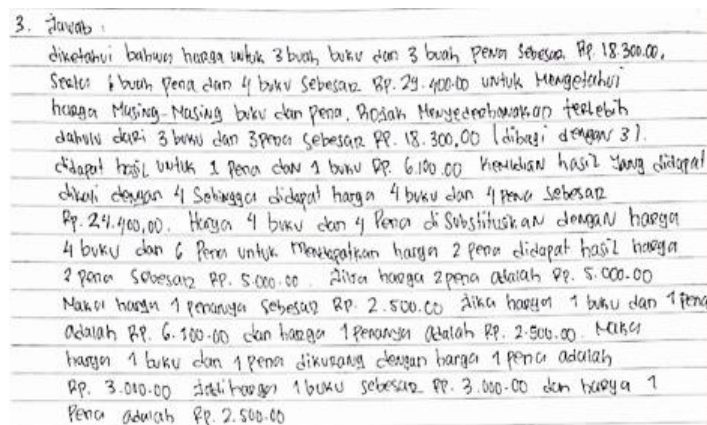 3. Jawab :
diketahui bahwa harga untuk 3 buah buku dan 3 buah pena sebesar Rp. 18.300.00,
Serta 6 buah pena dan 4 buku sebesar Rp. 29.400.00 untuk Mengetahui
harga Masing-Masing buku dan pena, Menyederhanakan terlebih
dahulu dari 3 buku dan 3 pena sebesar RP. 18.300,00 (dibagi dengan 3).
didapat hasil untuk 1 Pena dan 1 buku Rp. 6.100.00 Kemudian hasil yang didapat
dikali dengan 4 Sehingga didapat harga 4 buku dan 4 pena sebesar
Rp. 24.400,00. Harga 4 buku dan 4 Pena di Substitusikan dengan harga
4 buku dan 6 Pena untuk Mendapatkan harga 2 pena didapat hasil harga
2 pena sebesar RP. 5.000.00. Jika harga 2 pena adalah Rp. 5.000-00
Maka harga 1 penanya sebesar RP. 2.500.00 Jika harga 1 buku dan 1 Pena
adalah RP. 6.100-00 dan harga 1 Penanya adalah Rp. 2.500.00. Maka
harga 1 buku dan 1 pena dikurang dengan harga 1 pena adalah
Rp. 3.000.00 Jadi harga 1 buku sebesar RP. 3.000-00 dan harga 1
Pena adalah Rp. 2.500.00